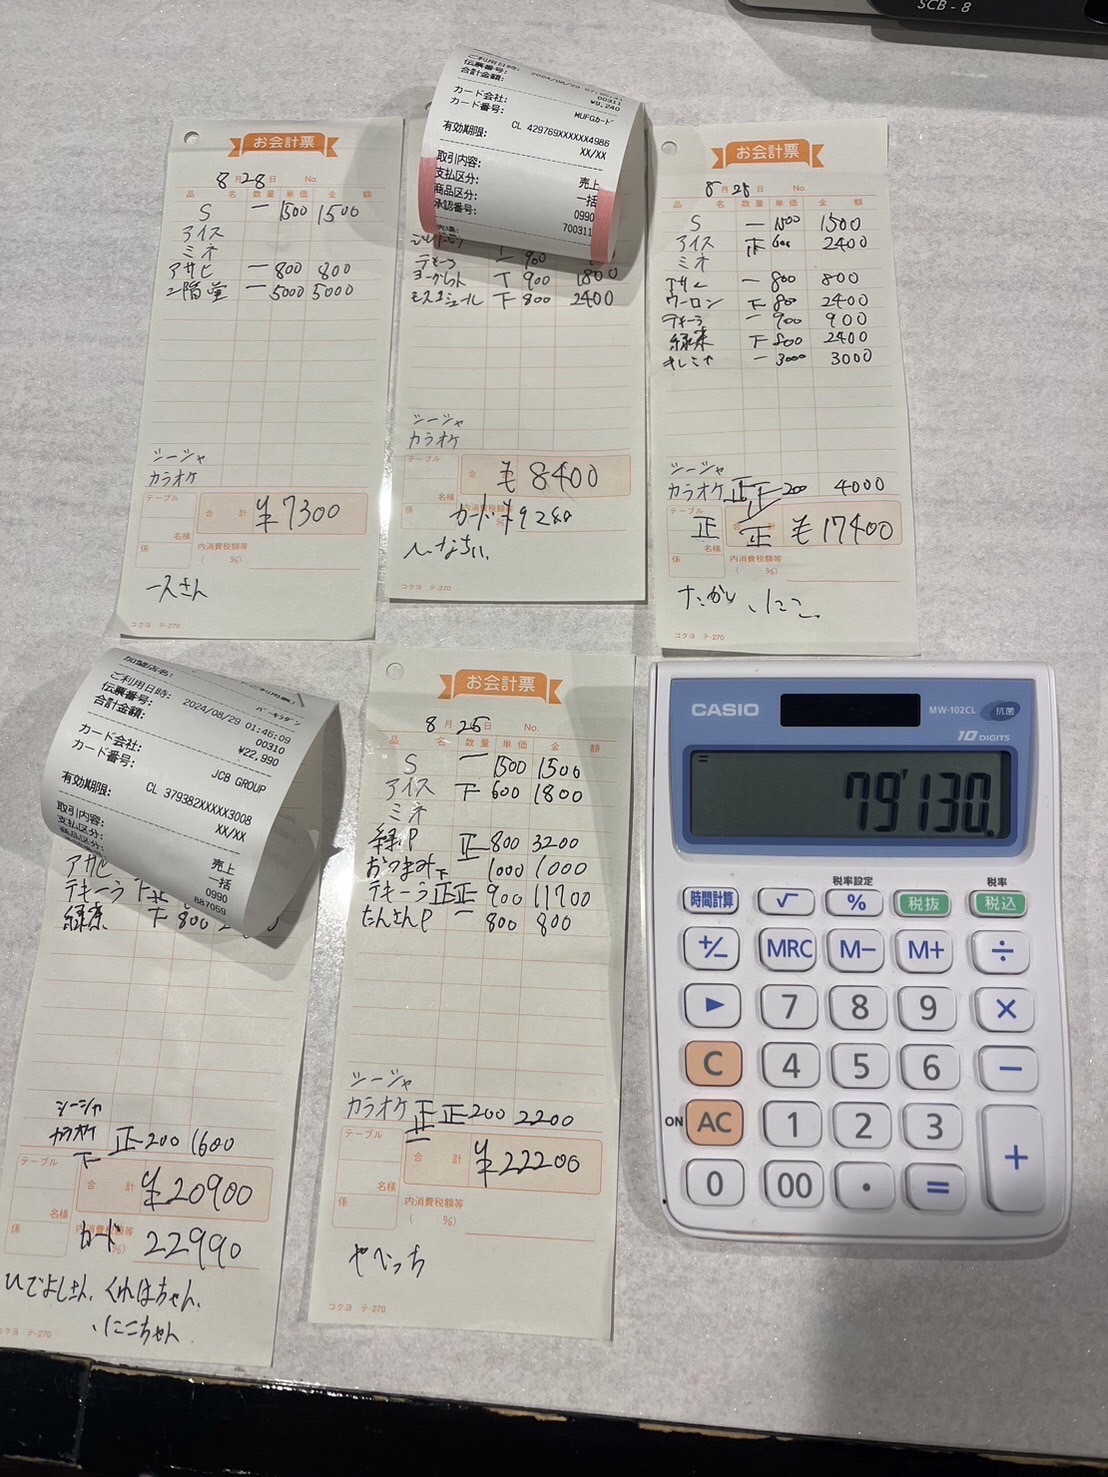 SCB-8
お会計票
8月28日 No.
品名 数量 単価 金額
S 一 1500 1500
アイス
ミネ
アサヒ 一 800 800
二階堂 一 5000 5000
シーシャ
カラオケ
テーブル
合計 ¥7300
名様
係
内消費税額等
( %)
コクヨ テ-270
ご利用日時:
伝票番号: 00311
合計金額: ¥9,240
カード会社: MUFGカード
カード番号:
CL 429769XXXXXX4986
有効期限: XX/XX
取引内容: 売上
支払区分: 一括
商品区分: 0990
承認番号: 700311
テキーラ 一 900
ヨーグルト 丅 900 1800
モスコミュール 下 800 2400
シーシャ
カラオケ
テーブル
合 ¥8400
名様
カード ¥9240
係
コクヨ テ-270
お会計票
8月28日 No.
品名 数量 単価 金額
S 一 1500 1500
アイス 正 600 2400
ミネ
アサヒ 一 800 800
ウーロン 下 800 2400
テキーラ 一 900 900
緑茶 下 800 2400
キレミヤ 一 3000 3000
シーシャ
カラオケ 正下 200 4000
テーブル 正
合計 正 ¥17400
名様
係
内消費税額等
( %)
たかし、にこ
コクヨ テ-270
加盟店名:
ご利用日時: 2024/08/29 01:46:09
伝票番号: 00310
合計金額: ¥22,990
カード会社: JCB GROUP
カード番号:
CL 379382XXXXX3008
有効期限: XX/XX
取引内容: 売上
支払区分: 一括
商品区分: 0990
887059
アサヒ
テキーラ
緑茶 下 800
シーシャ
カラオケ 正下 200 1600
テーブル
合計 ¥20900
名様
係
内消費税額等
カード 22990
%)
ひでよしさん、くれはちゃん、
にこちゃん
テ-270
お会計票
8月25日 No.
品名 数量 単価 金額
S 一 1500 1500
アイス 下 600 1800
ミネ
緑P 正 800 3200
おつまみ 1000 1000
テキーラ 正正下 900 11700
たんさんP 一 800 800
シーシャ
カラオケ 正正一 200 2200
テーブル
合計 ¥22200
名様
係
内消費税額等
( %)
やべっち
コクヨ テ-270
CASIO
MW-102CL 抗菌
10 DIGITS
79'130.
税率設定 税率
時間計算 √ % 税抜 税込
+/− MRC M− M+ ÷
▶ 7 8 9 ×
C 4 5 6 −
ON AC 1 2 3 +
0 00 • =